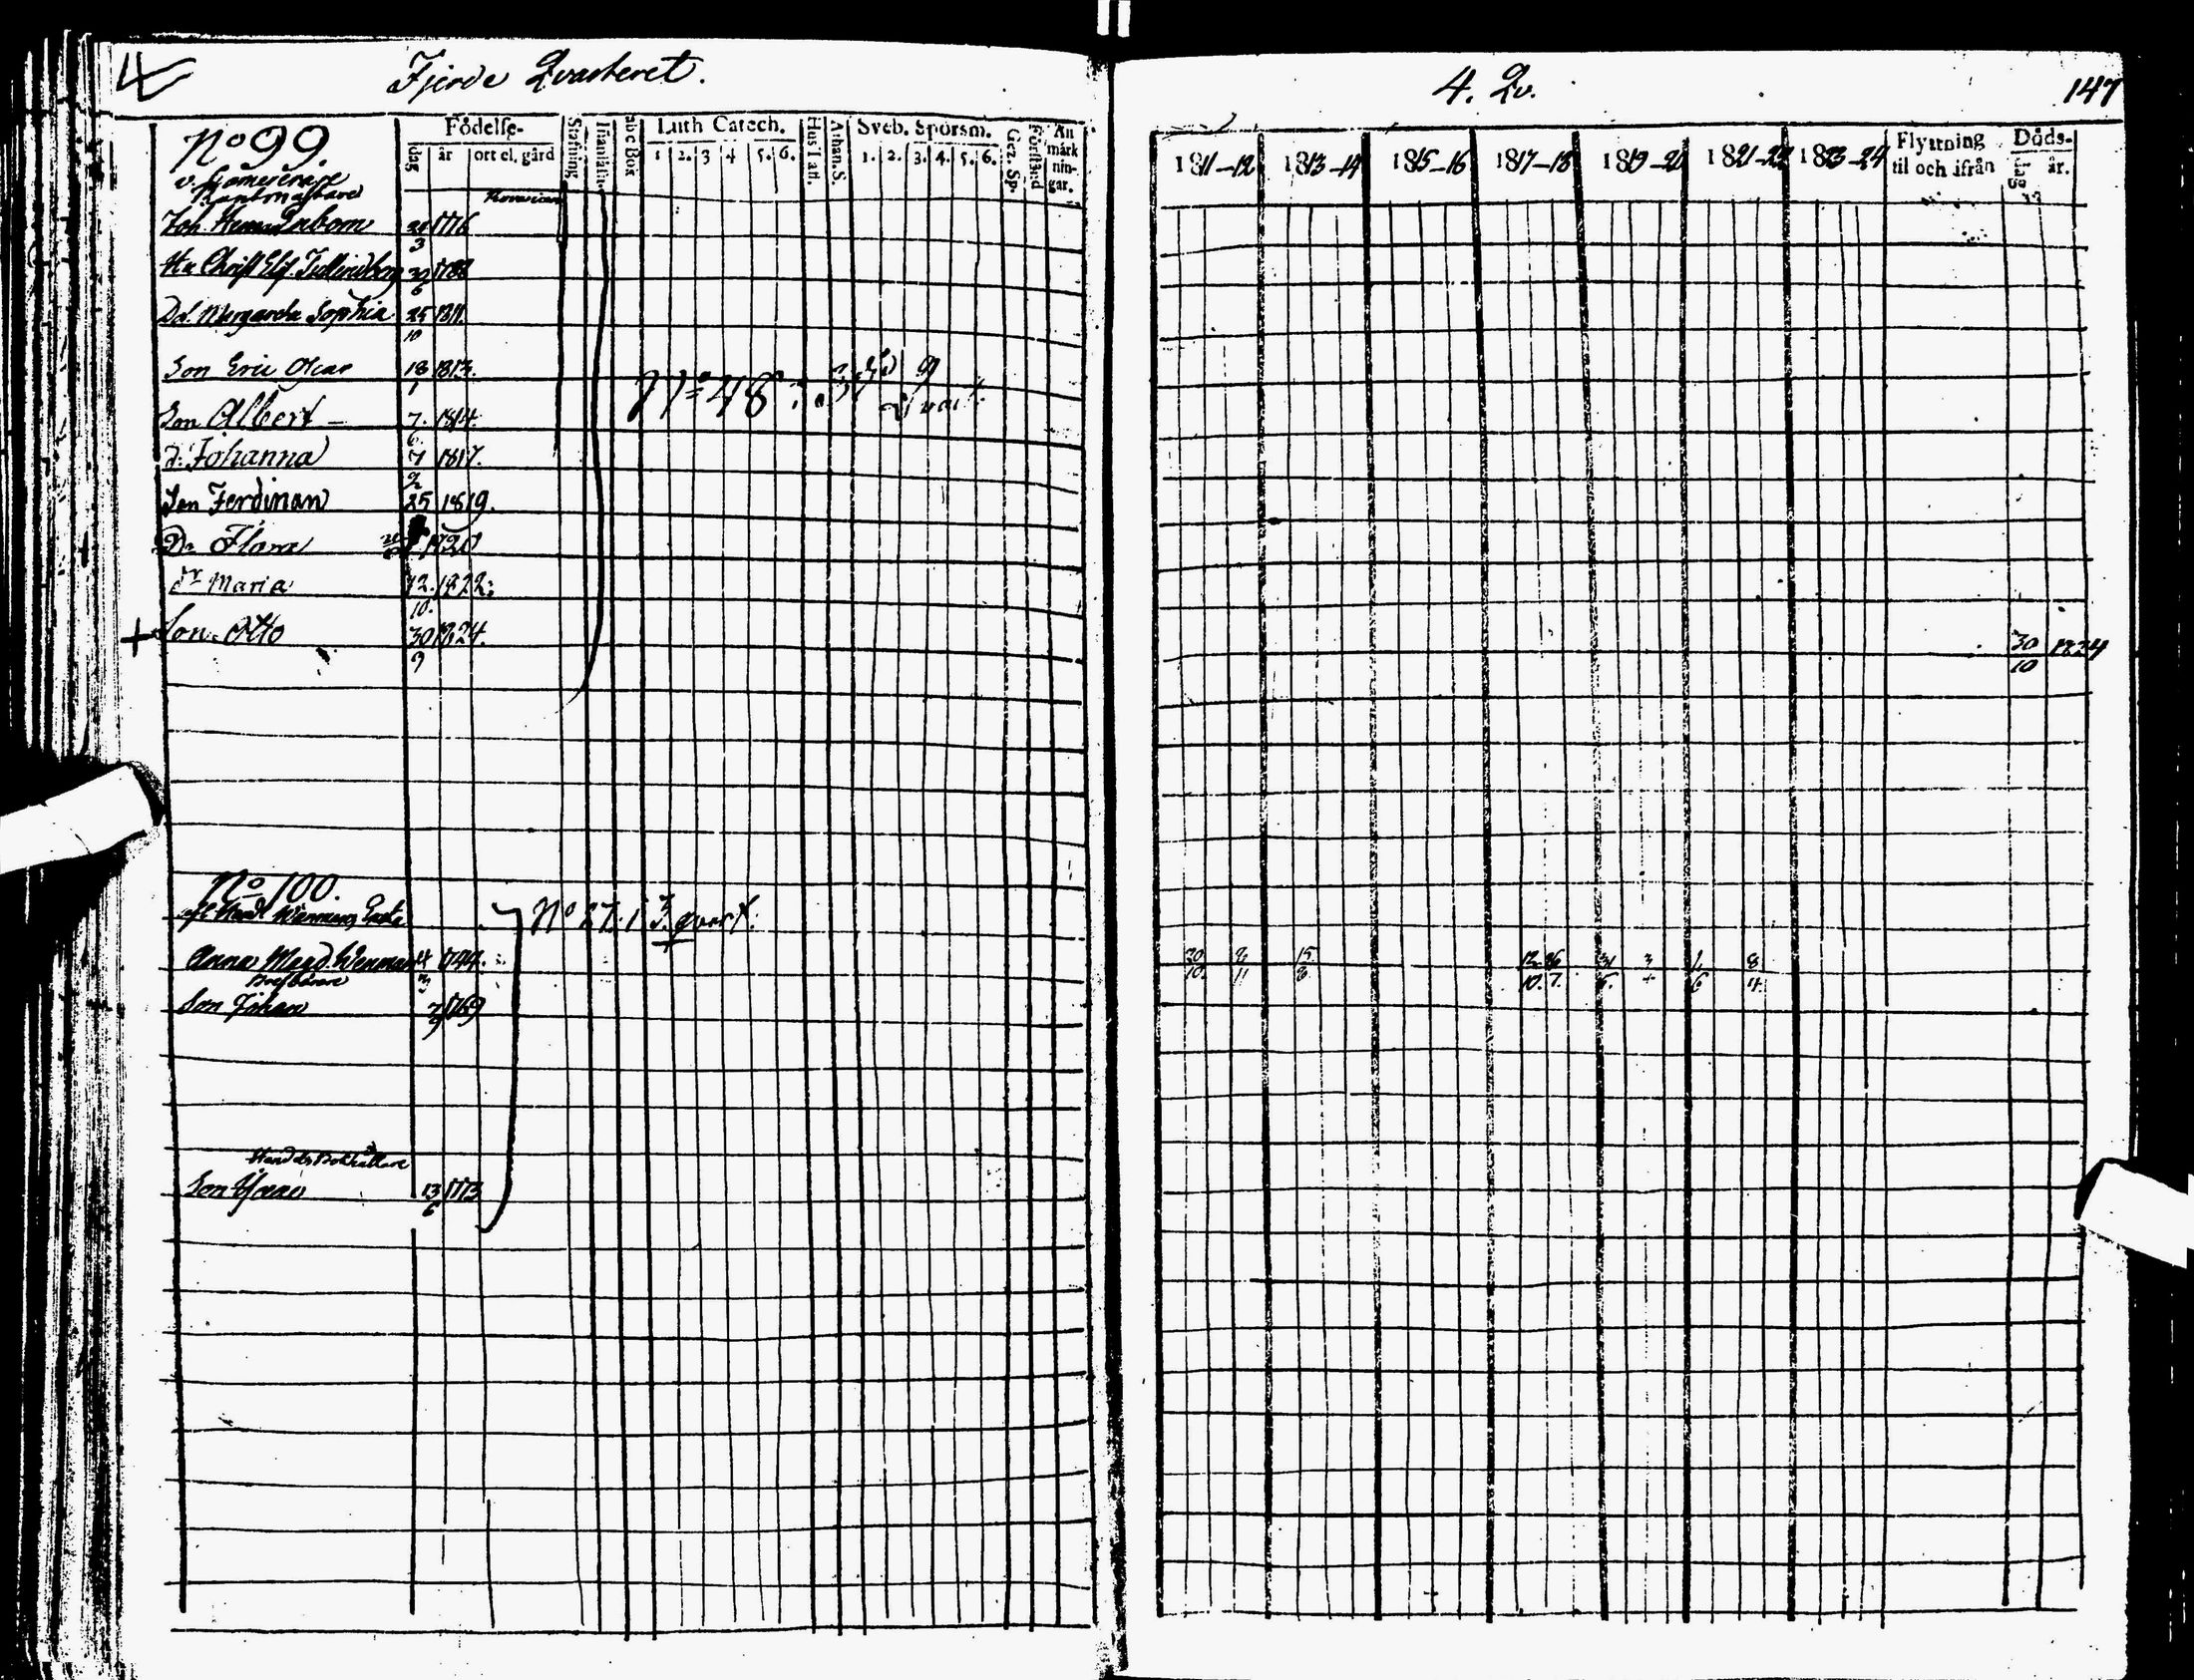 4
Fjerde Qvarteret.
4. Qv.
147
No 99.
Födelse-
dag
år
ort el. gård
Stafning
Innanläsn.
abc Bok
Luth Catech.
1 2. 3 4 5. 6.
Hus Tafl.
Athan. S.
Sveb. Spörsm.
1. 2. 3. 4. 5. 6.
Gez. Sp.
Förstånd
An
märk
nin-
gar.
1811-12
1813-14
1815-16
1817-18
1819-20
1821-22
1823-24
Flyttning
til och ifrån
Döds-
dag
år.
v. Camererare
Joh. 1776
3
Hu Christ Elis 30 1788
6
Dd. Margareta Sophia 25 1811.
10
Son Eric Oscar 18 1813.
1
No 48: 3
Son Albert 7. 1814.
6.
d: Johanna 7 1817.
2
Son Ferdinan 25 1819.
Dr Flora 1820
dr Maria 12. 1822:
10.
+ Son Otto 30 1824.
9
30 1824
10
No 100.
No 27. i 3. qvart.
Anna Magd. Wenman
3
Son Johan 1769
9
20 8 15 12. 26 31 3 1. 8
10. 11 8 10. 7. 5. 4 6 4.
Handels Bokhållare
Son 13 1773
6